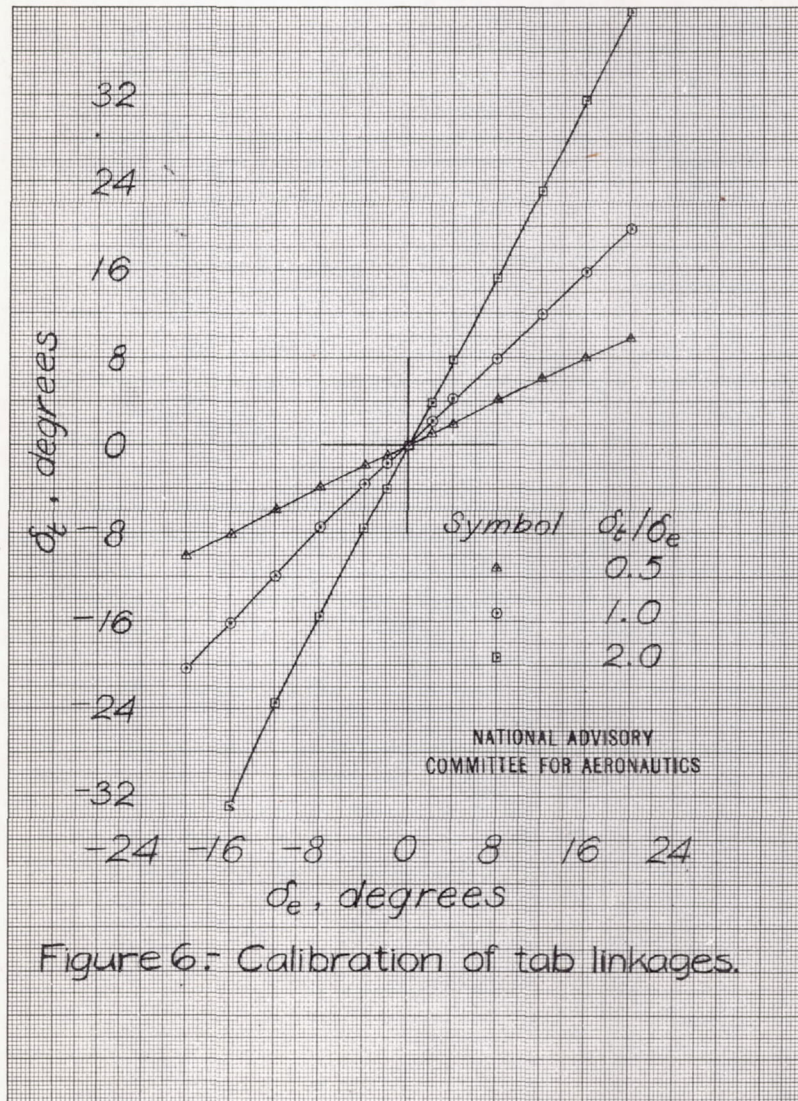 32
24
16
8
0
-8
-16
-24
-32
δt, degrees
Symbol δt/δe
0.5
1.0
2.0
NATIONAL ADVISORY
COMMITTEE FOR AERONAUTICS
-24 -16 -8 0 8 16 24
δe, degrees
Figure 6.- Calibration of tab linkages.